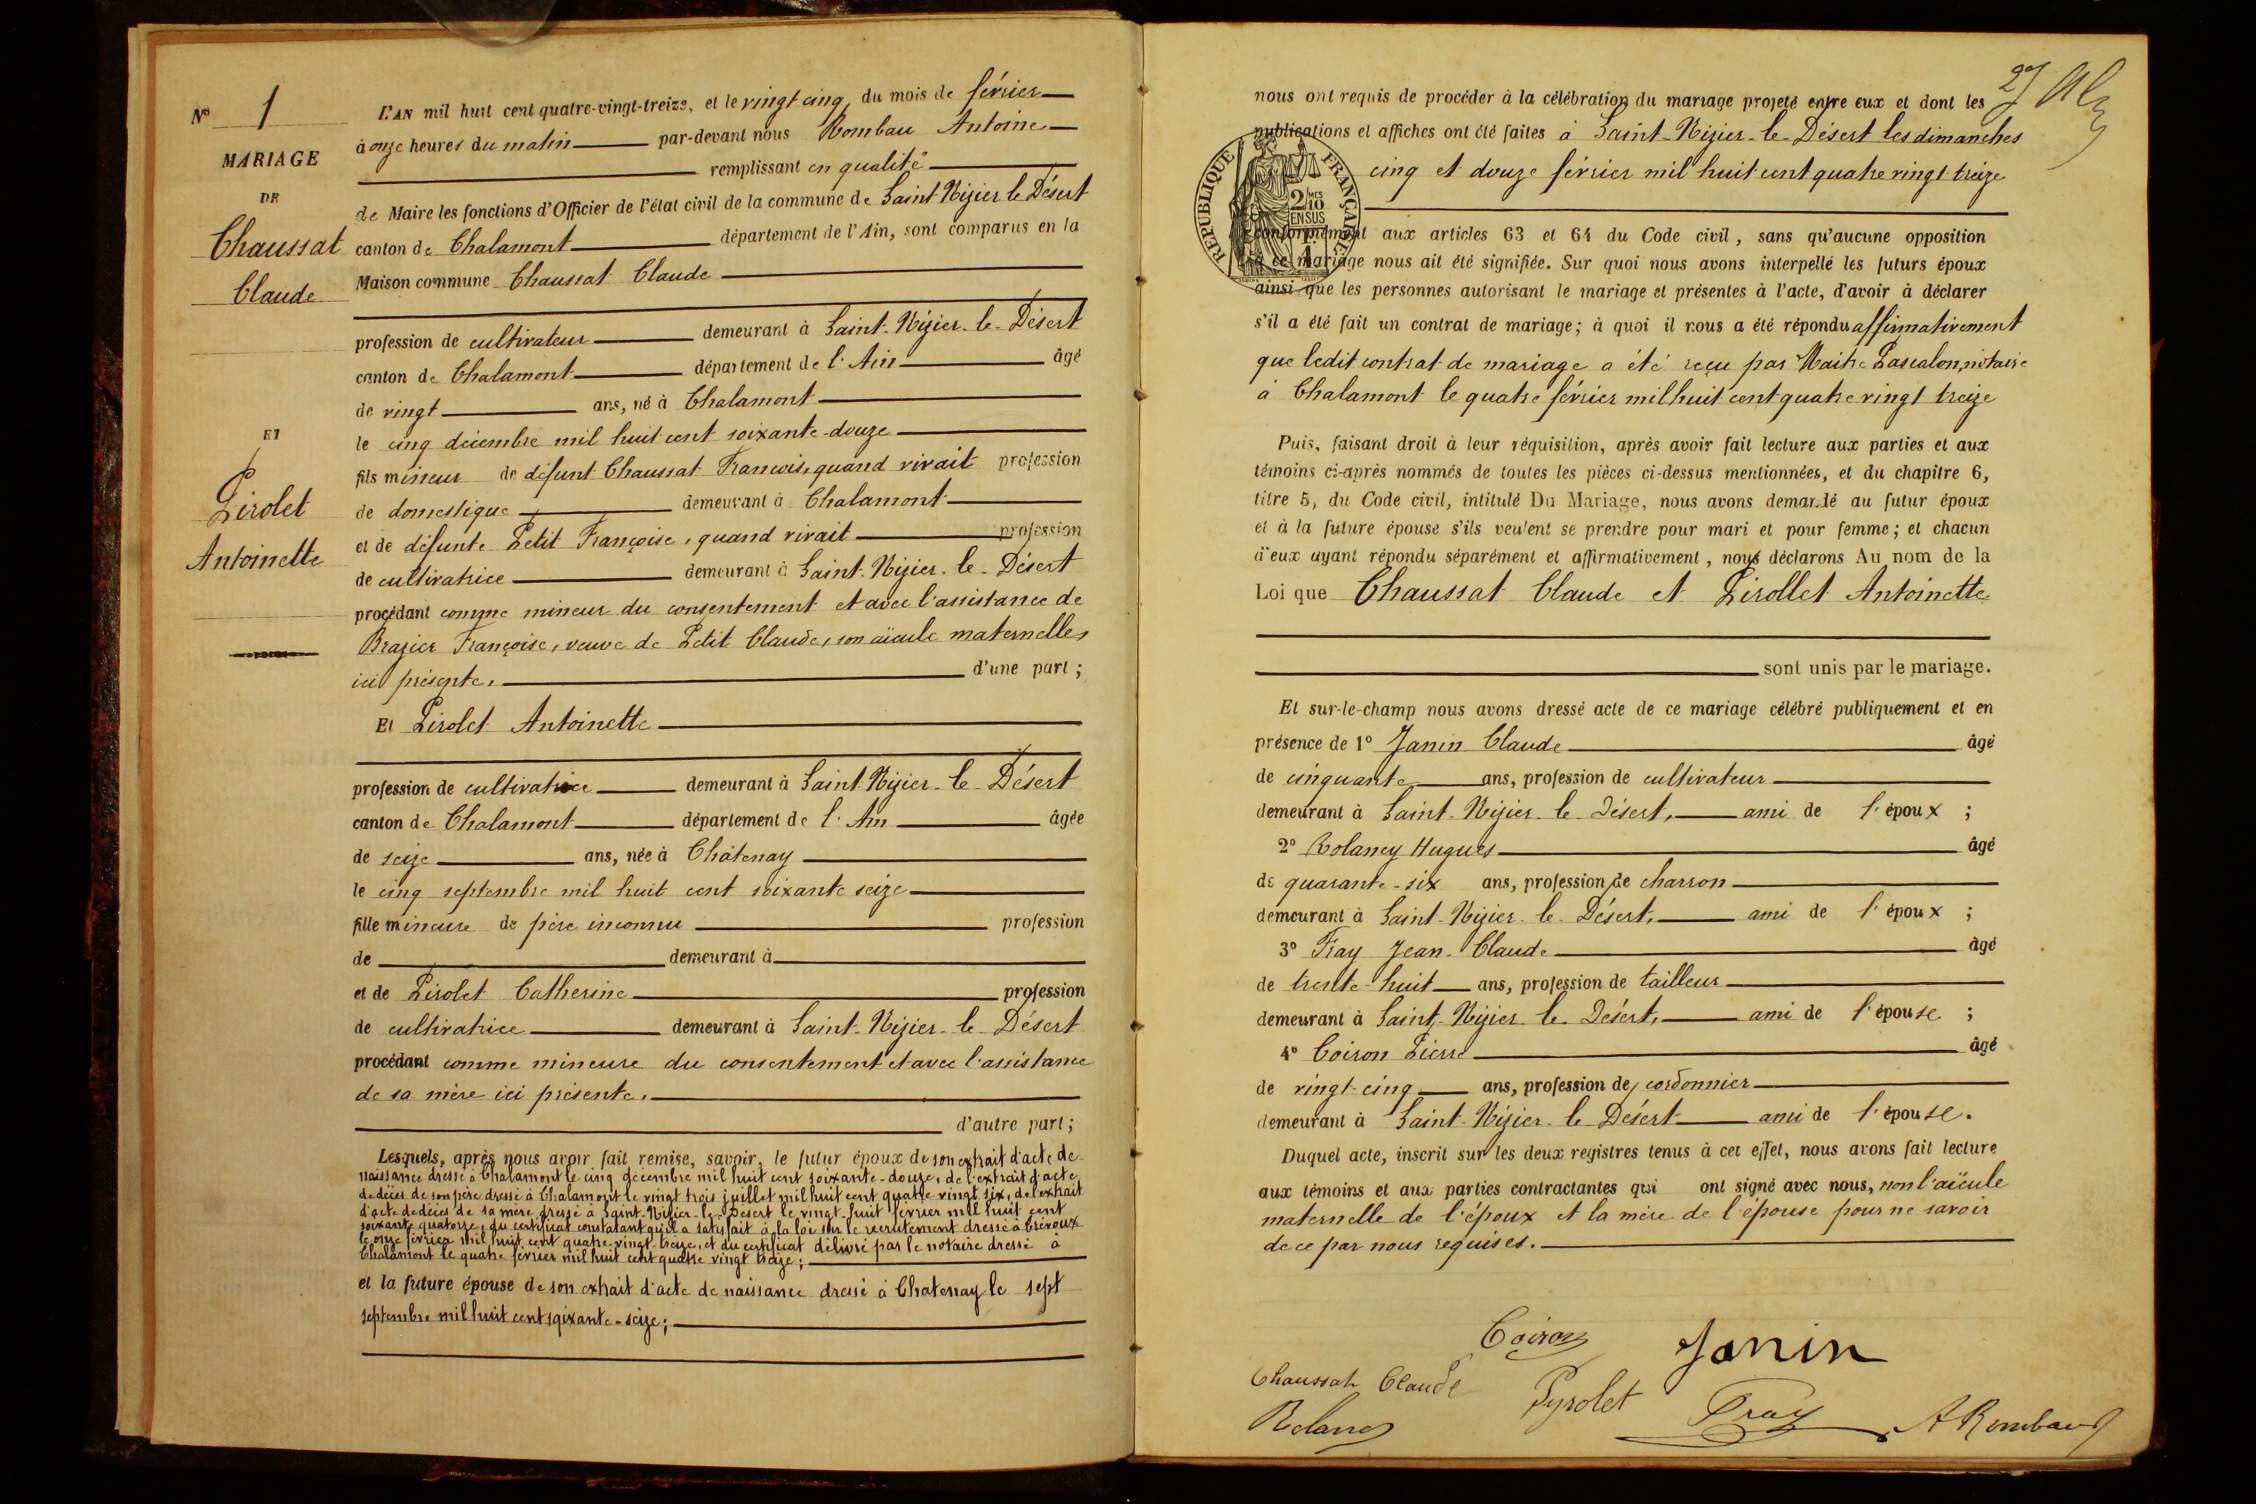 N° 1
MARIAGE
DE
Chaussat
Claude
ET
Pirolet
Antoinette
L'AN mil huit cent quatre-vingt-treize, et le vingt cinq, du mois de février
à onze heures du matin par-devant nous Rombau Antoine
remplissant en qualité
de Maire les fonctions d'Officier de l'état civil de la commune de Saint Nizier le Désert
canton de Chalamont département de l'Ain, sont comparus en la
Maison commune Chaussat Claude
profession de cultivateur demeurant à Saint-Nizier-le-Désert
canton de Chalamont département de l'Ain âgé
de vingt ans, né à Chalamont
le cinq décembre mil huit cent soixante-douze
fils mineur de défunt Chaussat Francois, quand vivait profession
de domestique demeurant à Chalamont
et de défunte Petit Françoise, quand vivait profession
de cultivatrice demeurant à Saint-Nizier-le-Désert
procédant comme mineur du consentement et avec l'assistance de
Brazier Françoise, veuve de Petit Claude, son aïeule maternelle,
ici présente, d'une part;
Et Pirolet Antoinette
profession de cultivatrice demeurant à Saint-Nizier-le-Désert
canton de Chalamont département de l'Ain âgée
de seize ans, née à Châtenay
le cinq septembre mil huit cent soixante seize
fille mineure de père inconnu profession
de demeurant à
et de Pirolet Catherine profession
de cultivatrice demeurant à Saint-Nizier-le-Désert
procédant comme mineure du consentement et avec l'assistance
de sa mère ici présente,
d'autre part;
Lesquels, après nous avoir fait remise, savoir, le futur époux de son extrait d'acte de
naissance dressé à Chalamont le cinq décembre mil huit cent soixante-douze, de l'extrait d'acte
de décès de son père dressé à Chalamont le vingt trois juillet mil huit cent quatre-vingt six, de l'extrait
d'acte de décès de sa mère dressé à Saint-Nizier-le-Désert le vingt-huit février mil huit cent
soixante quatorze, du certificat constatant qu'il a satisfait à la loi sur le recrutement dressé à Trévoux
le onze février mil huit cent quatre-vingt-treize, et du certificat délivré par le notaire dressé à
Chalamont le quatre février mil huit cent quatre vingt treize;
et la future épouse de son extrait d'acte de naissance dressé à Chatenay le sept
septembre mil huit cent soixante-seize;
27
nous ont requis de procéder à la célébration du mariage projeté entre eux et dont les
publications et affiches ont été faites à Saint-Nizier-le-Désert les dimanches
cinq et douze février mil huit cent quatre vingt treize
RÉPUBLIQUE FRANÇAISE
2/10 EN SUS
conformément aux articles 63 et 64 du Code civil, sans qu'aucune opposition
à ce mariage nous ait été signifiée. Sur quoi nous avons interpellé les futurs époux
ainsi que les personnes autorisant le mariage et présentes à l'acte, d'avoir à déclarer
s'il a été fait un contrat de mariage; à quoi il nous a été répondu affirmativement
que ledit contrat de mariage a été reçu par Maitre Pascalon, notaire
à Chalamont le quatre février mil huit cent quatre vingt treize
Puis, faisant droit à leur réquisition, après avoir fait lecture aux parties et aux
témoins ci-après nommés de toutes les pièces ci-dessus mentionnées, et du chapitre 6,
titre 5, du Code civil, intitulé Du Mariage, nous avons demandé au futur époux
et à la future épouse s'ils veulent se prendre pour mari et pour femme; et chacun
d'eux ayant répondu séparément et affirmativement, nous déclarons Au nom de la
Loi que Chaussat Claude et Pirollet Antoinette
sont unis par le mariage.
Et sur-le-champ nous avons dressé acte de ce mariage célébré publiquement et en
présence de 1° Janin Claude âgé
de cinquante ans, profession de cultivateur
demeurant à Saint-Nizier-le-Désert, ami de l'époux;
2° Rolancy Hugues âgé
de quarante-six ans, profession de charron
demeurant à Saint-Nizier-le-Désert, ami de l'époux;
3° Fray Jean-Claude âgé
de trente-huit ans, profession de tailleur
demeurant à Saint-Nizier-le-Désert, ami de l'épouse;
4° Coiron Pierre âgé
de vingt-cinq ans, profession de cordonnier
demeurant à Saint-Nizier-le-Désert ami de l'épouse.
Duquel acte, inscrit sur les deux registres tenus à cet effet, nous avons fait lecture
aux témoins et aux parties contractantes qui ont signé avec nous, non l'aïeule
maternelle de l'époux et la mère de l'épouse pour ne savoir
de ce par nous requises.
Coiron Janin
Chaussat Claude Pyrolet Fray A Rombau